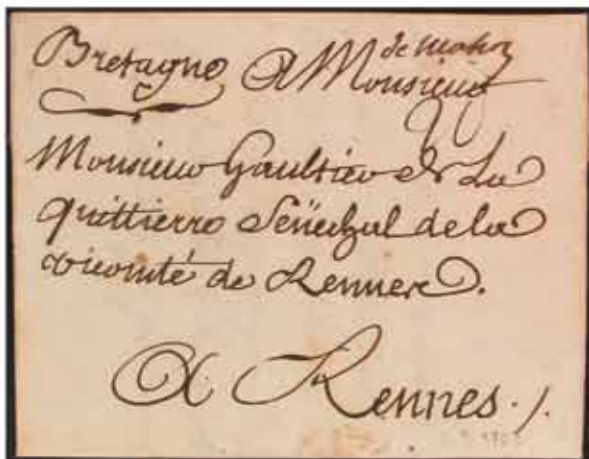 Bretagne A Monsieur
Monsieur Gaultier de La
quittierre Senechal de la
vicomté de Rennes.
A Rennes ./.